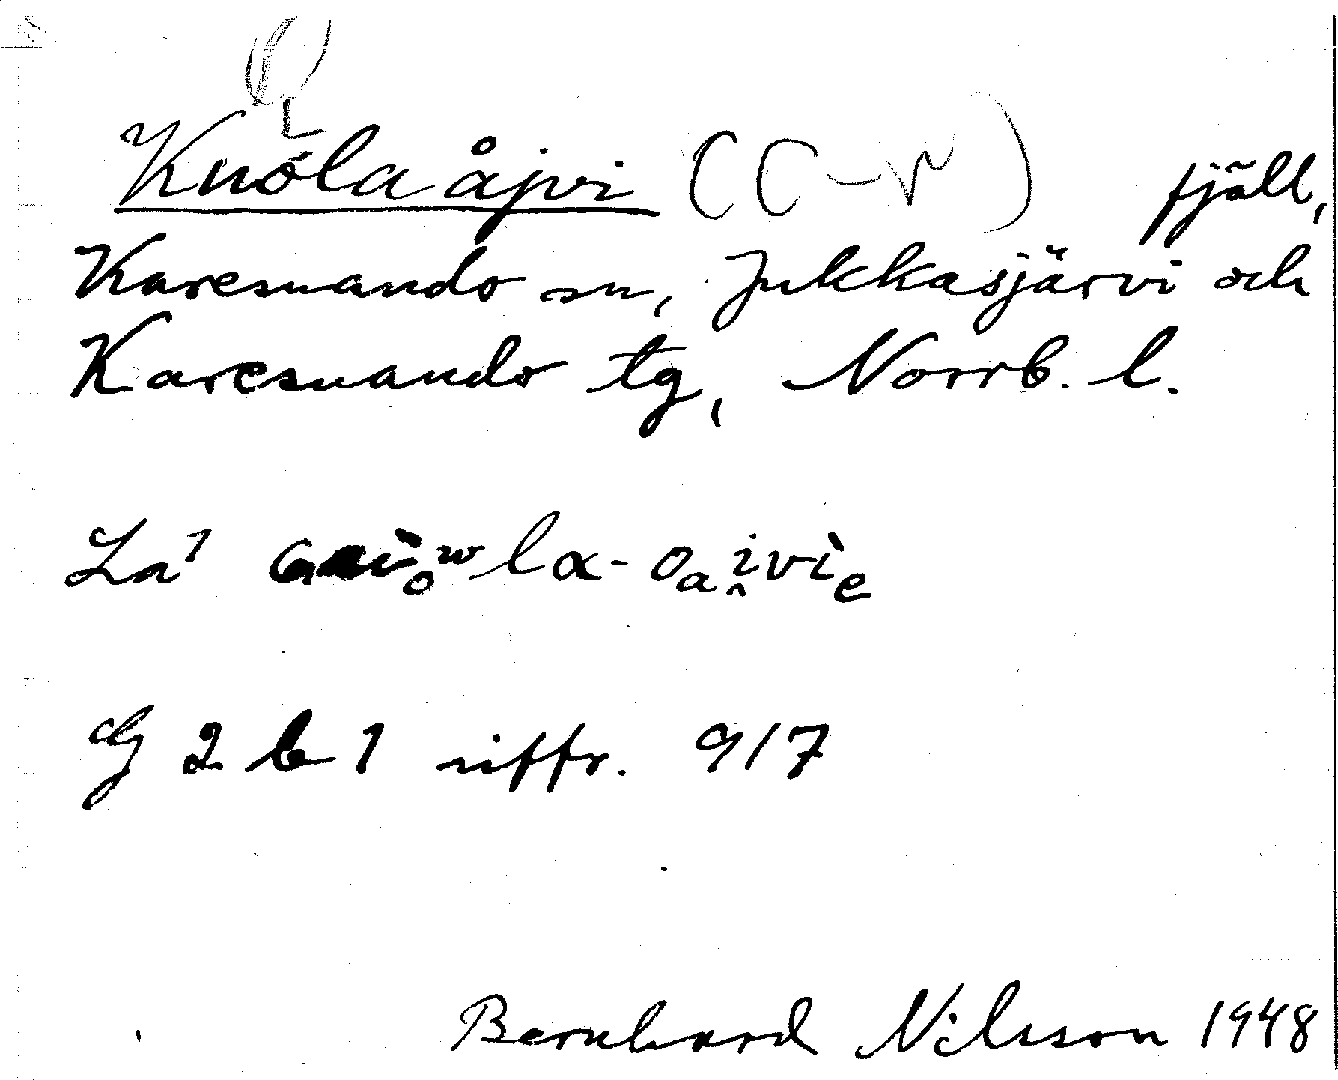 Kuóla åjvi fjäll,
Karesuando sn, Jukkasjärvi och
Karesuando tg, Norrb. l.
La1
G 2 b 1 siffr. 917
Bernhard Nilsson 1948